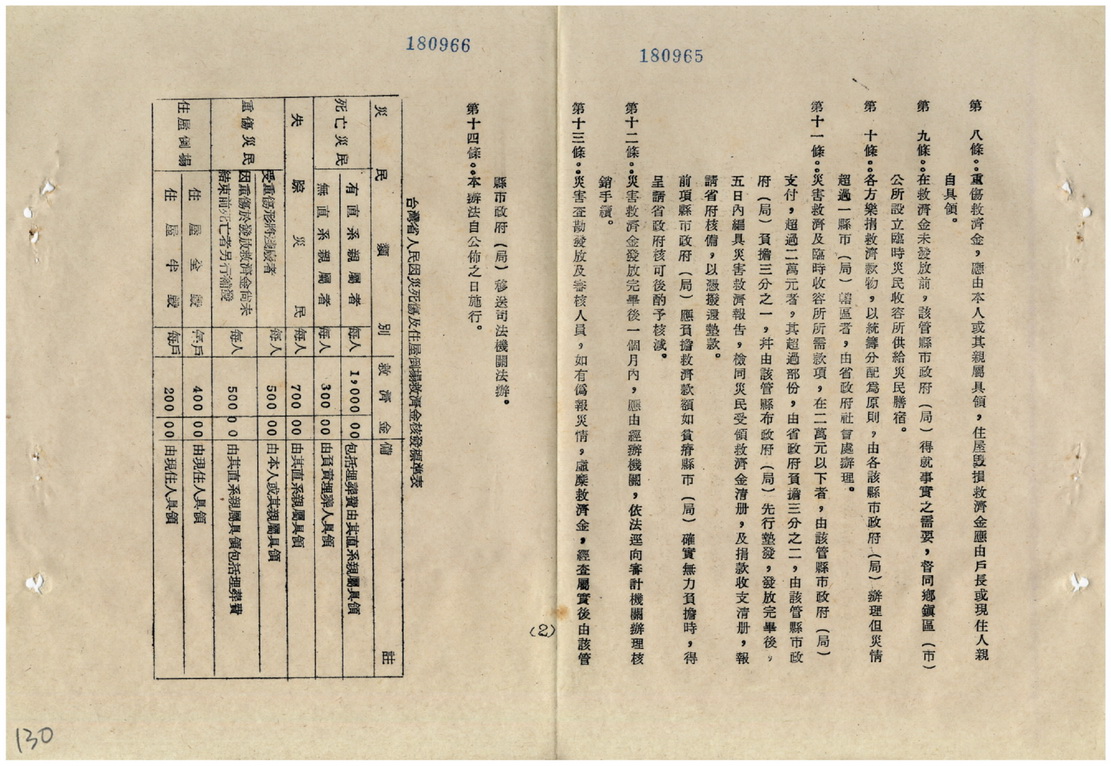 180965
第八條：重傷救濟金，應由本人或其親屬具領，住屋毀損救濟金應由戶長或現住人親
自具領。
第九條：在救濟金未發放前，該管縣市政府（局）得就事實之需要，督同鄉鎮區（市）
公所設立臨時災民收容所供給災民膳宿。
第十條：各方樂捐救濟款物，以統籌分配為原則，由各該縣市政府（局）辦理但災情
超過一縣市（局）轄區者，由省政府社會處辦理。
第十一條：災害救濟及臨時收容所所需款項，在二萬元以下者，由該管縣市政府（局）
支付，超過二萬元者，其超過部份，由省政府負擔三分之二，由該管縣市政
府（局）負擔三分之一，幷由該管縣市政府（局）先行墊發，發放完畢後，
五日內編具災害救濟報告，檢同災民受領救濟金清册，及捐款收支清册，報
請省府核備，以憑撥還墊款。
前項縣市政府（局）應負擔救濟款額如貧瘠縣市（局）確實無力負擔時，得
呈請省政府核可後酌予核減。
第十二條：災害救濟金發放完畢後一個月內，應由經辦機關，依法逕向審計機關辦理核
銷手續。
第十三條：災害查勘發放及審核人員，如有偽報災情，虛糜救濟金，經查屬實後由該管
(2)
180966
縣市政府（局）移送司法機關法辦。
第十四條：本辦法自公佈之日施行。
台灣省人民因災死傷及住屋倒塌救濟金核發標準表
災民類別 救濟金 備註
死亡災民 有直系親屬者 每人 1,000 00 包括埋葬費由其直系親屬具領
無直系親屬者 每人 300 00 由負責埋葬人具領
失蹤災民 每人 700 00 由其直系親屬具領
重傷災民 受重傷形將殘廢者 每人 500 00 由本人或其親屬具領
因重傷於發放救濟金尚未
結束前死亡者另行補發 每人 500 0 由其直系親屬具領包括埋葬費
住屋倒塌 住屋全毀 每戶 400 00 由現住人具領
住屋半毀 每戶 200 00 由現住人具領
130